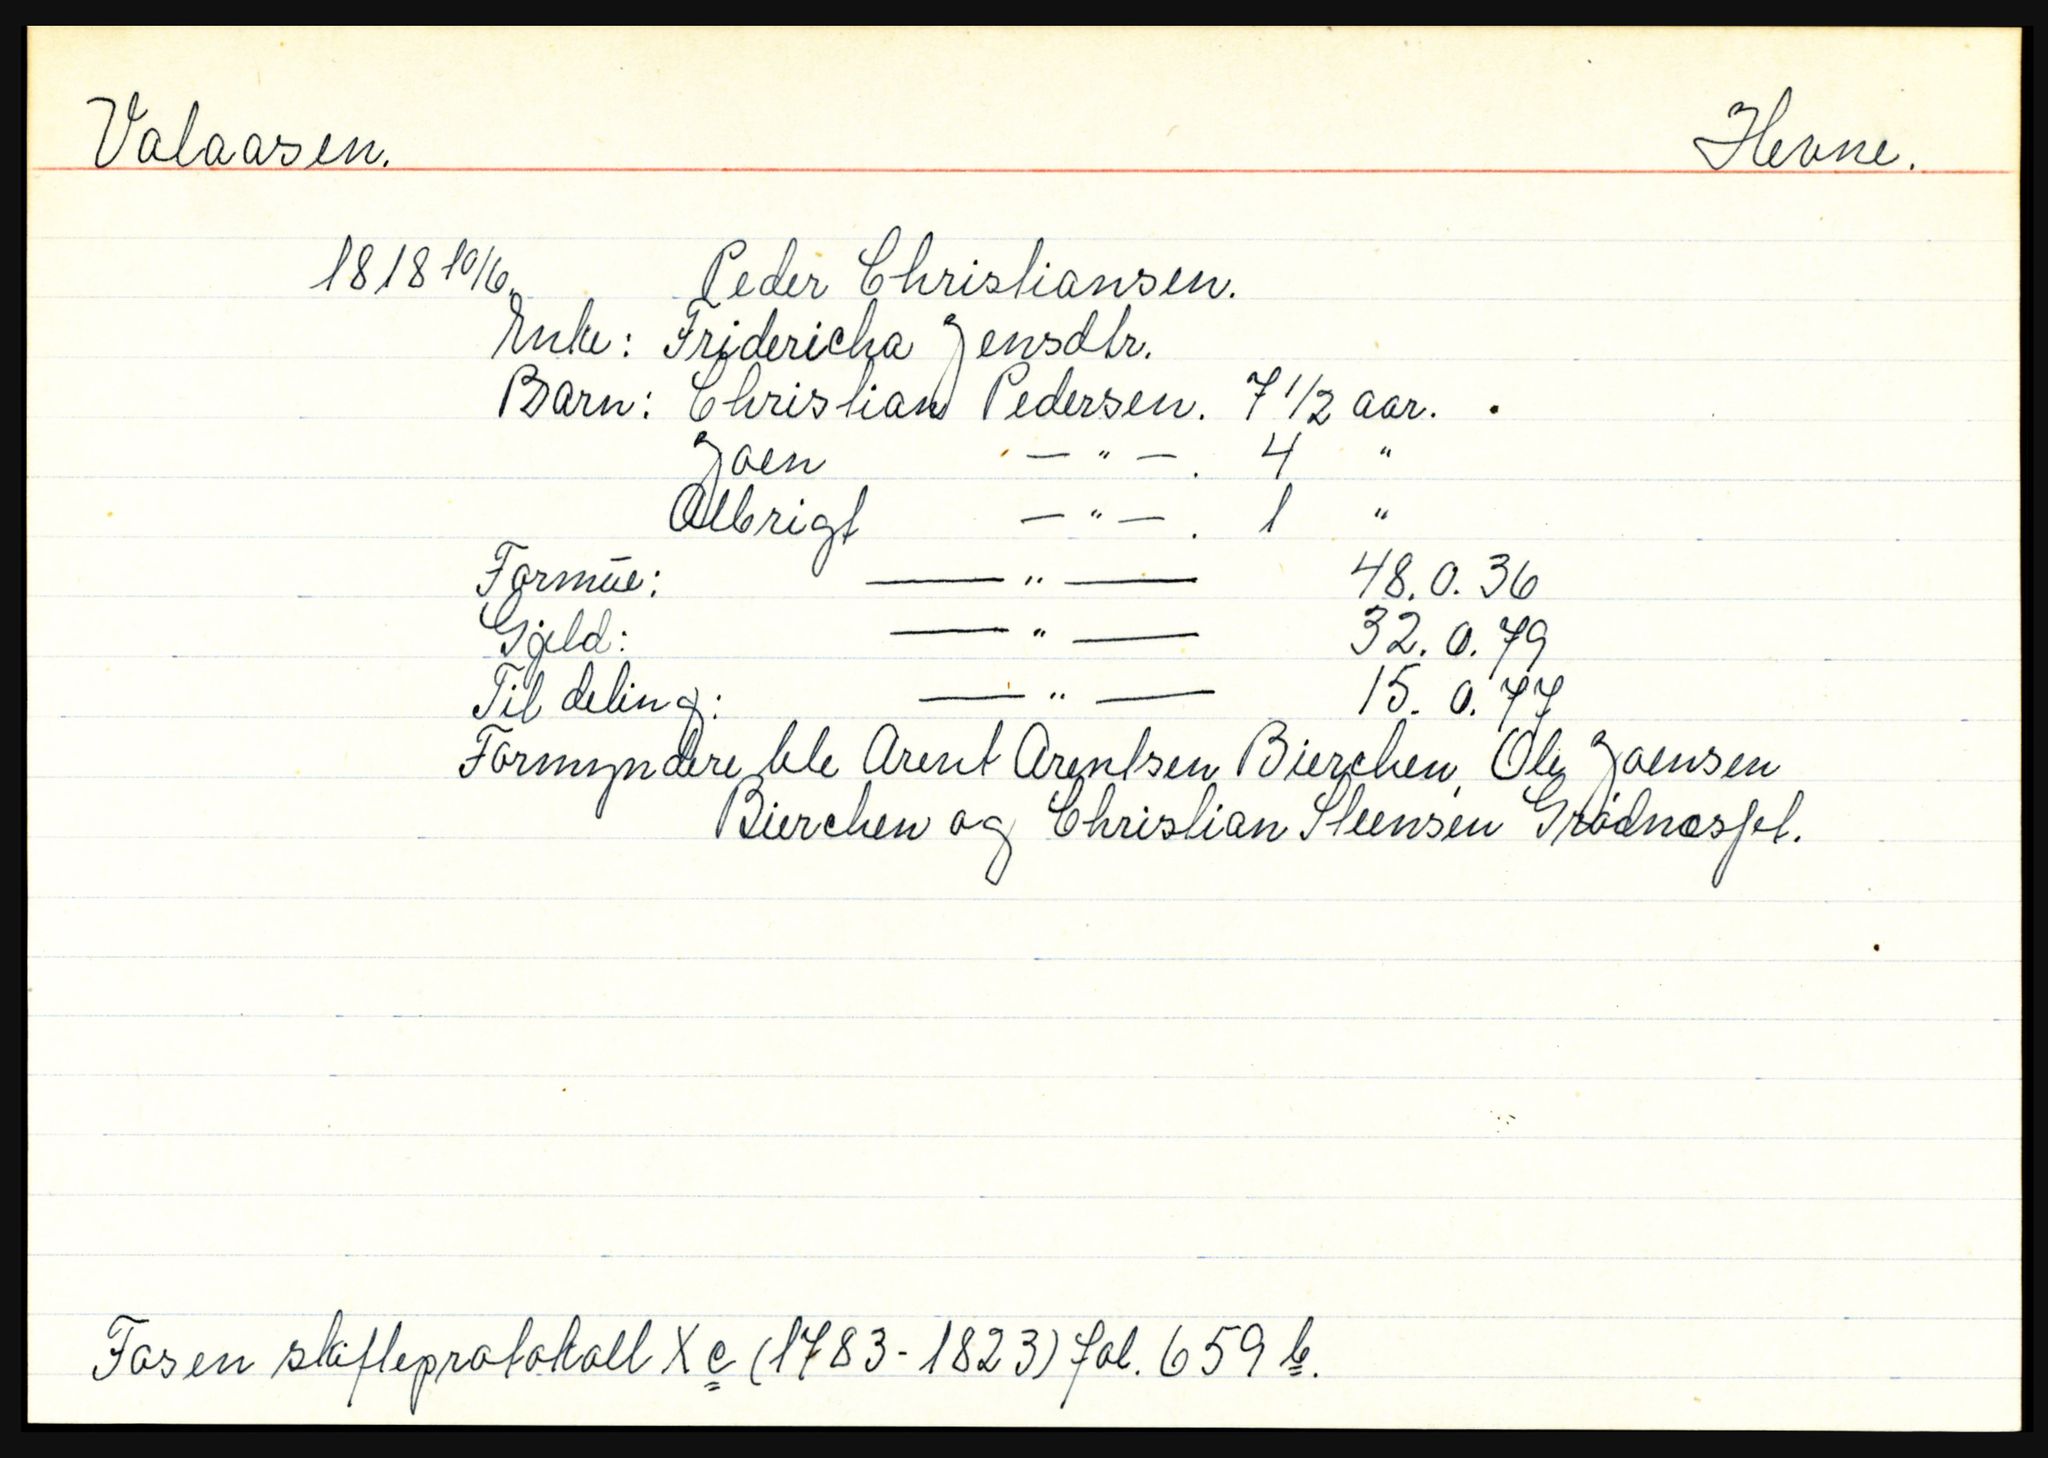 Valaasen. Hevne.
1818 10/6. Peder Christiansen.
Enke: Fridericha Jensdtr.
Barn: Christian Pedersen. 7 1/2 aar.
Joen — " — . 4 "
Albrigt — " — . 1 "
Formūe: — " — 48. 0. 36
Gjeld: — " — 32. 0. 79
Til deling: — " — 15. 0. 77
Formyndere ble Arent Arentsen Bierchen, Ole Joensen
Bierchen og Christian Steensen
Fosen skifteprotokoll X c (1783-1823) fol. 659 b.